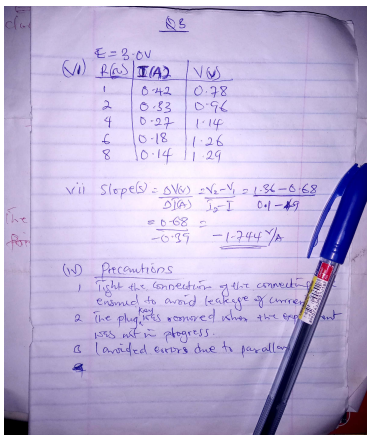 Q3
E = 3.0V
(vi) R(Ω) I(A) V(V)
1 0.42 0.78
2 0.33 0.96
4 0.27 1.14
6 0.18 1.26
8 0.14 1.29
vii Slope(s) = ΔV(V) = V2 - V1 = 1.36 - 0.68
ΔI(A) I2 - I 0.1 - 49
= 0.68 =
-0.39 -1.744 V/A
(iv) Precautions
1 Tight the connection of the connecti
ensured to avoid leakage of curren
2 The plug key was removed when the
was not in progress.
3 I avoided errors due to parallax